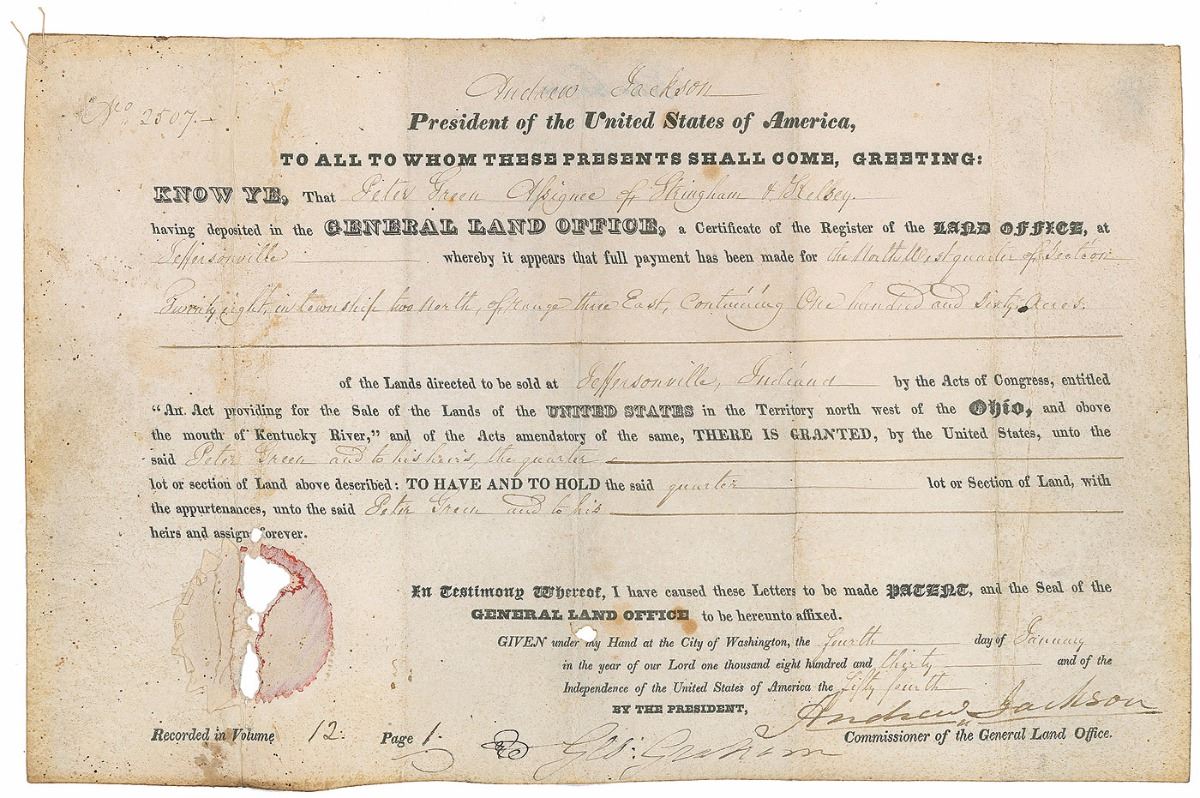 Andrew Jackson
No. 2507.
President of the United States of America,
TO ALL TO WHOM THESE PRESENTS SHALL COME, GREETING:
KNOW YE, That Peter Green Assignee of Stringham & Kelsey.
having deposited in the GENERAL LAND OFFICE, a Certificate of the Register of the LAND OFFICE, at
Jeffersonville whereby it appears that full payment has been made for the North West quarter of Section
Twenty eight, in township two North, of range three East, Containing One hundred and sixty Acres.
of the Lands directed to be sold at Jeffersonville, Indiana by the Acts of Congress, entitled
"An Act providing for the Sale of the Lands of the UNITED STATES in the Territory north west of the Ohio, and above
the mouth of Kentucky River," and of the Acts amendatory of the same, THERE IS GRANTED, by the United States, unto the
said Peter Green and to his heirs, the quarter
lot or section of Land above described: TO HAVE AND TO HOLD the said quarter lot or Section of Land, with
the appurtenances, unto the said Peter Green and to his
heirs and assigns forever.
In Testimony Whereof, I have caused these Letters to be made PATENT, and the Seal of the
GENERAL LAND OFFICE to be hereunto affixed.
GIVEN under my Hand at the City of Washington, the fourth day of January
in the year of our Lord one thousand eight hundred and thirty and of the
Independence of the United States of America the fifty fourth
BY THE PRESIDENT, Andrew Jackson
Recorded in Volume 12. Page 1. Geo: Graham Commissioner of the General Land Office.